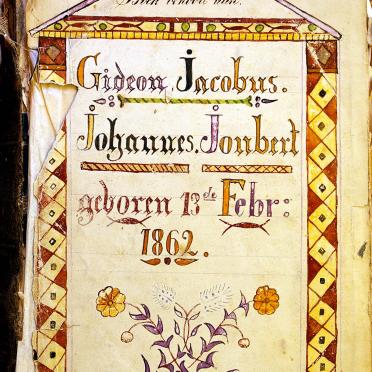 Gideon Jacobus.
Johannes. Joubert
geboren 13de Febr:
1862.